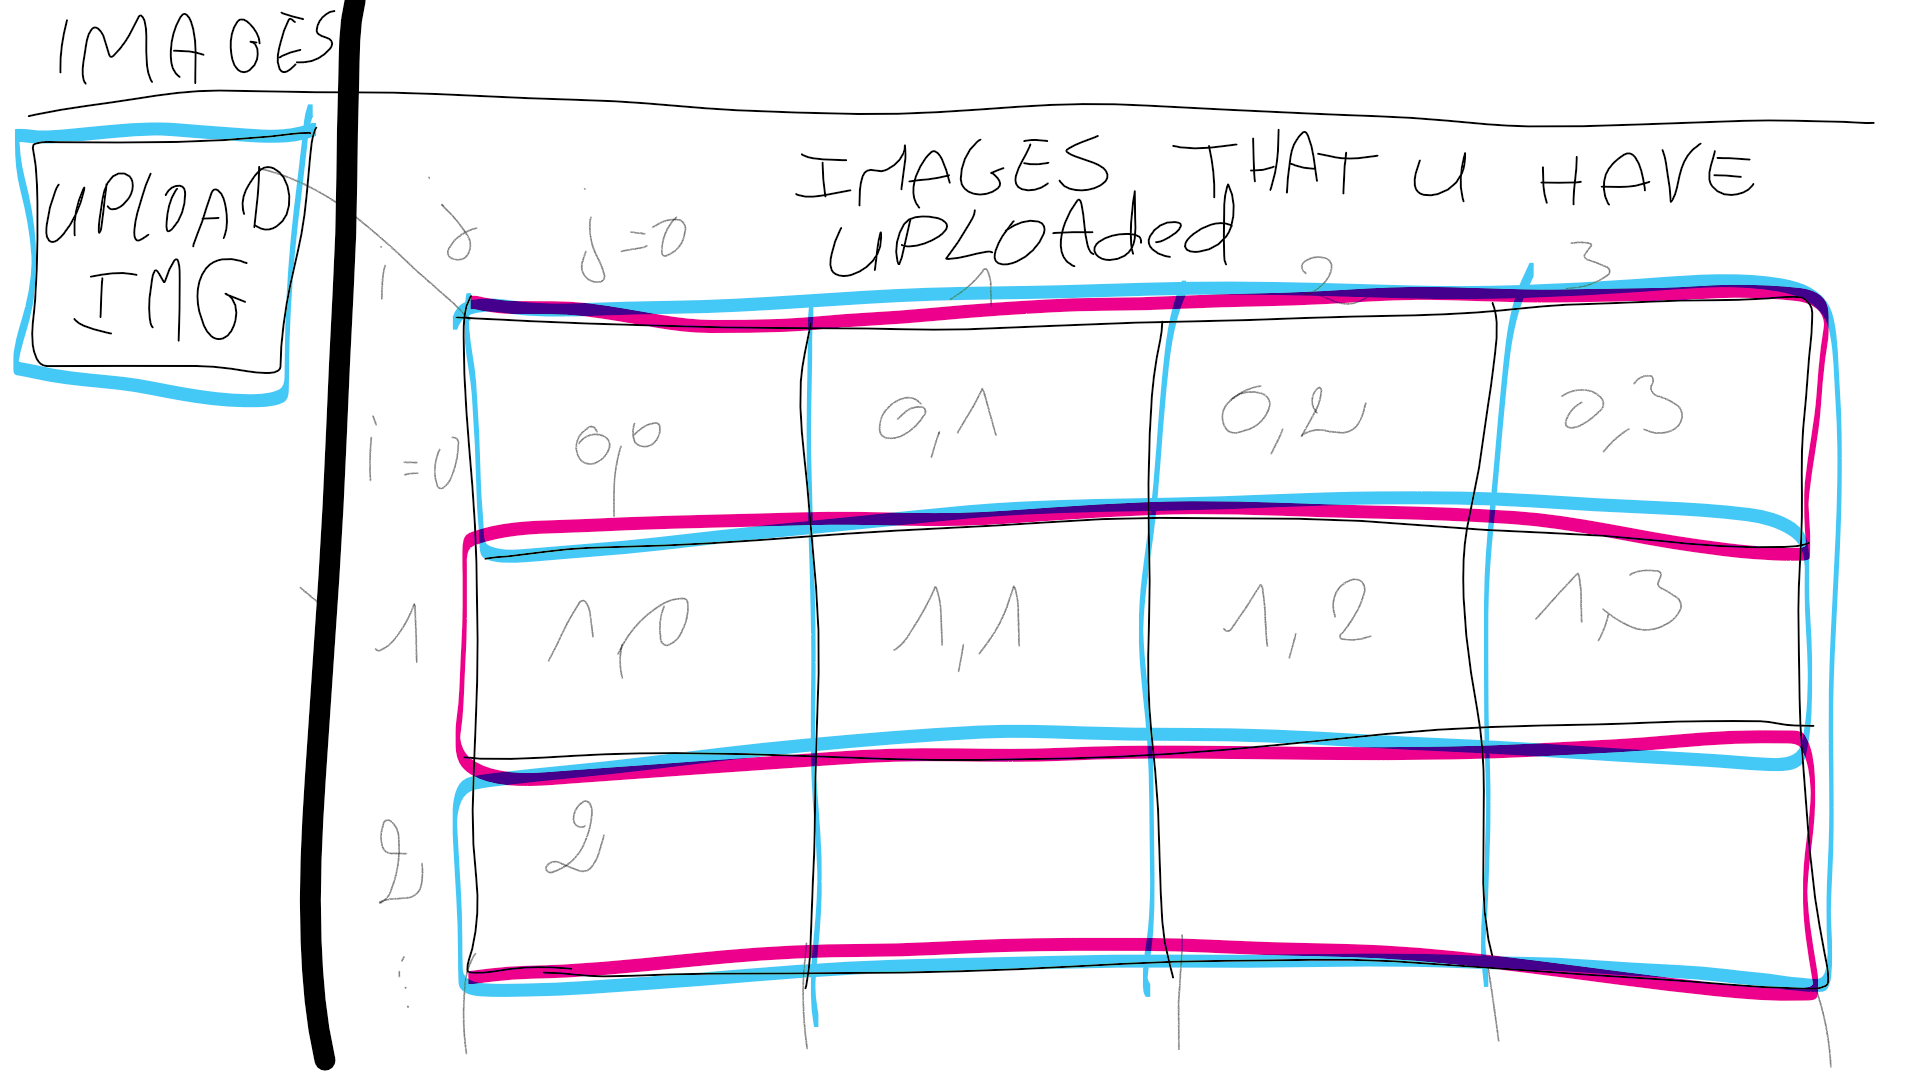 IMAGES
UPLOAD
IMG
IMAGES THAT U HAVE
UPLOAded
i j j=0 1 2 3
i=0 0,0 0,1 0,2 0,3
1 1,0 1,1 1,2 1,3
2 2